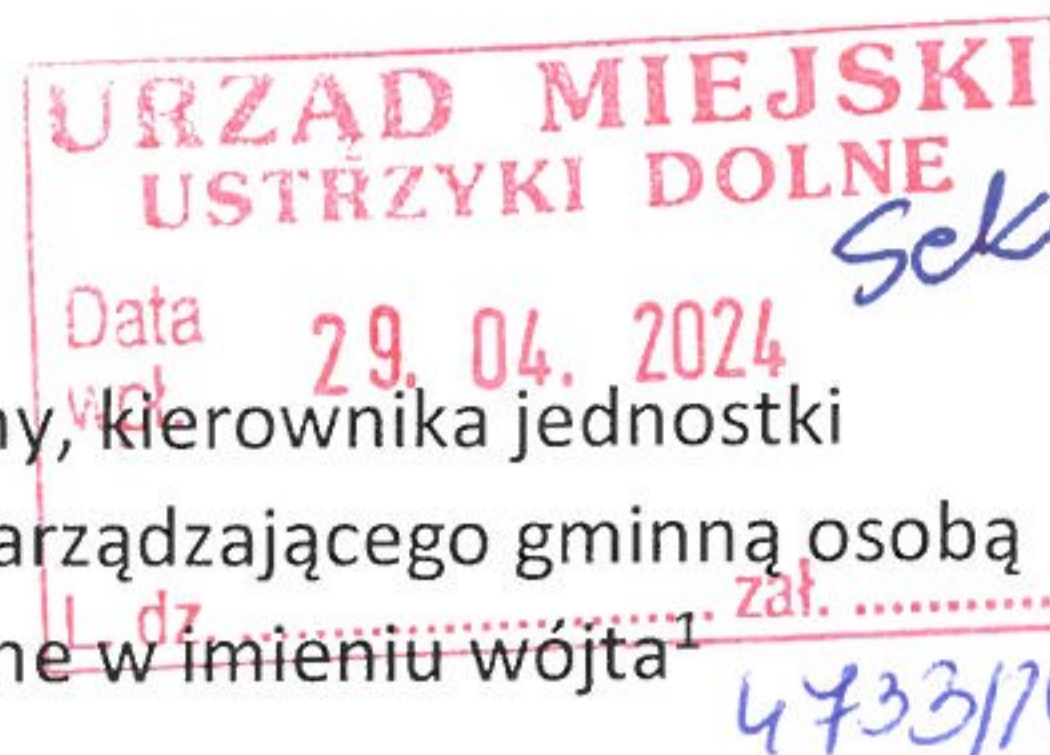 URZĄD MIEJSKI
USTRZYKI DOLNE
Sek
Data 29. 04. 2024
wpł.
ny, kierownika jednostki
arządzającego gminną osobą
L. dz. .................... zał. ..........
ne w imieniu wójta¹
4733/